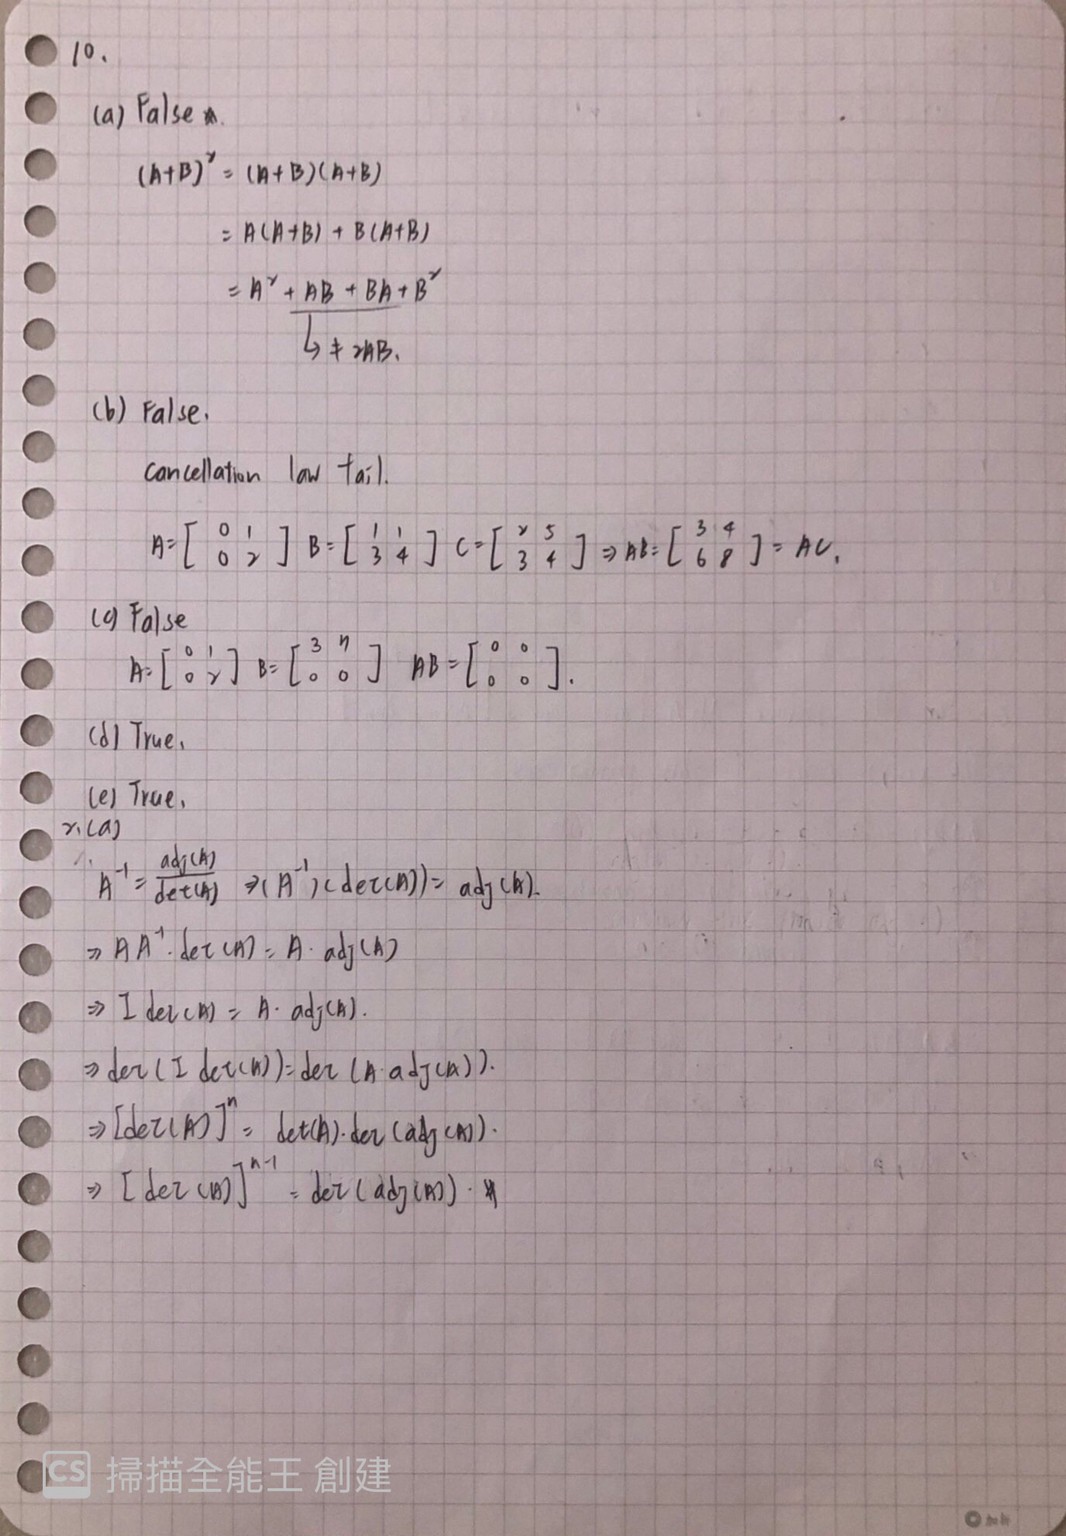 10.
(a) False
(A+B)² = (A+B)(A+B)
= A(A+B) + B(A+B)
= A² + AB + BA + B²
↳ ≠ 2AB.
(b) False.
cancellation law fail.
A = [0 1; 0 2] B = [1 1; 3 4] C = [2 5; 3 4] ⇒ AB = [3 4; 6 8] = AC.
(c) False
A = [0 1; 0 2] B = [3 7; 0 0] AB = [0 0; 0 0].
(d) True.
(e) True.
2.(a)
A⁻¹ = adj(A)/det(A) ⇒ (A⁻¹)(det(A)) = adj(A).
⇒ AA⁻¹·det(A) = A·adj(A)
⇒ I det(A) = A·adj(A).
⇒ det(I det(A)) = det(A·adj(A)).
⇒ [det(A)]ⁿ = det(A)·det(adj(A)).
⇒ [det(A)]ⁿ⁻¹ = det(adj(A)).
CS 掃描全能王 創建